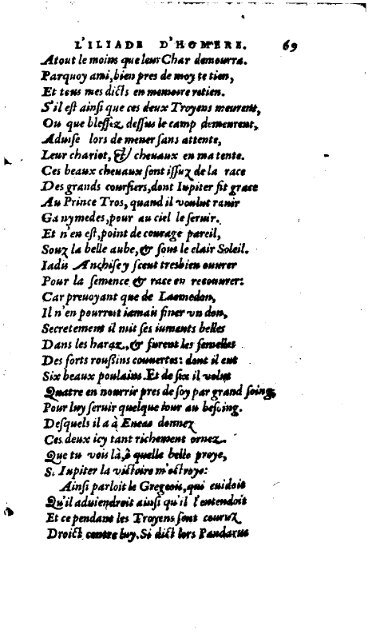 L'ILIADE D'HOMERE. 69
Atout le moins que leur Char demourra.
Parquoy ami, bien pres de moy te tien,
Et tous mes dicts en memoire retien.
S'il est ainsi que ces deux Troyens meurent,
Ou que blessez dessus le camp demeurent,
Aduise lors de mener sans attente,
Leur chariot, & cheuaux en ma tente.
Ces beaux cheuaux sont issuz de la race
Des grands coursiers, dont Iupiter fit grace
Au Prince Tros, quand il voulut rauir
Ganymedes, pour au ciel le seruir.
Et n'en est, point de courage pareil,
Souz la belle aube, & sous le clair Soleil.
Iadis Anchises y sceut tresbien ouurer
Pour la semence & race en recouurer:
Car preuoyant que de Laomedon,
Il n'en pourroit iamais finer un don,
Secretement il mit ses iuments belles
Dans les haraz, & furent les femelles
Des forts roussins couuertes: dont il eut
Six beaux poulains. Et de six il volut
Quatre en nourrir pres de soy par grand soing,
Pour luy seruir quelque iour au besoing.
Desquels il a à Eneas donnez
Ces deux icy tant richement ornez
Que tu vois là, ô quelle belle proye,
S. Iupiter la victoire m'octroye:
Ainsi parloit le Gregeois, qui cuidoit
Qu'il aduiendroit ainsi qu'il l'entendoit
Et cependant les Troyens sont couruz
Droict contre luy. Si dict lors Pandarus